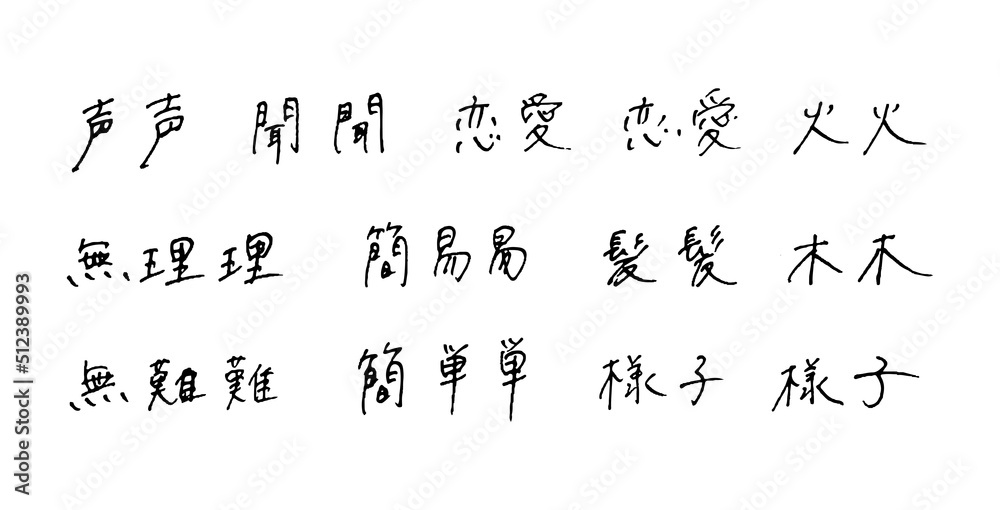 声声 聞聞 恋愛 恋愛 火火
無理理 簡易易 髪髪 木木
無難難 簡単単 様子 様子
Adobe Stock | #512389993